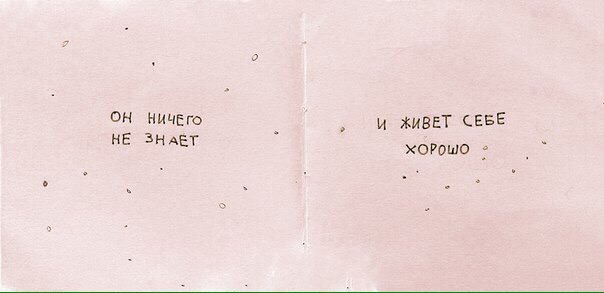 ОН НИЧЕГО
НЕ ЗНАЕТ
И ЖИВЕТ СЕБЕ
ХОРОШО